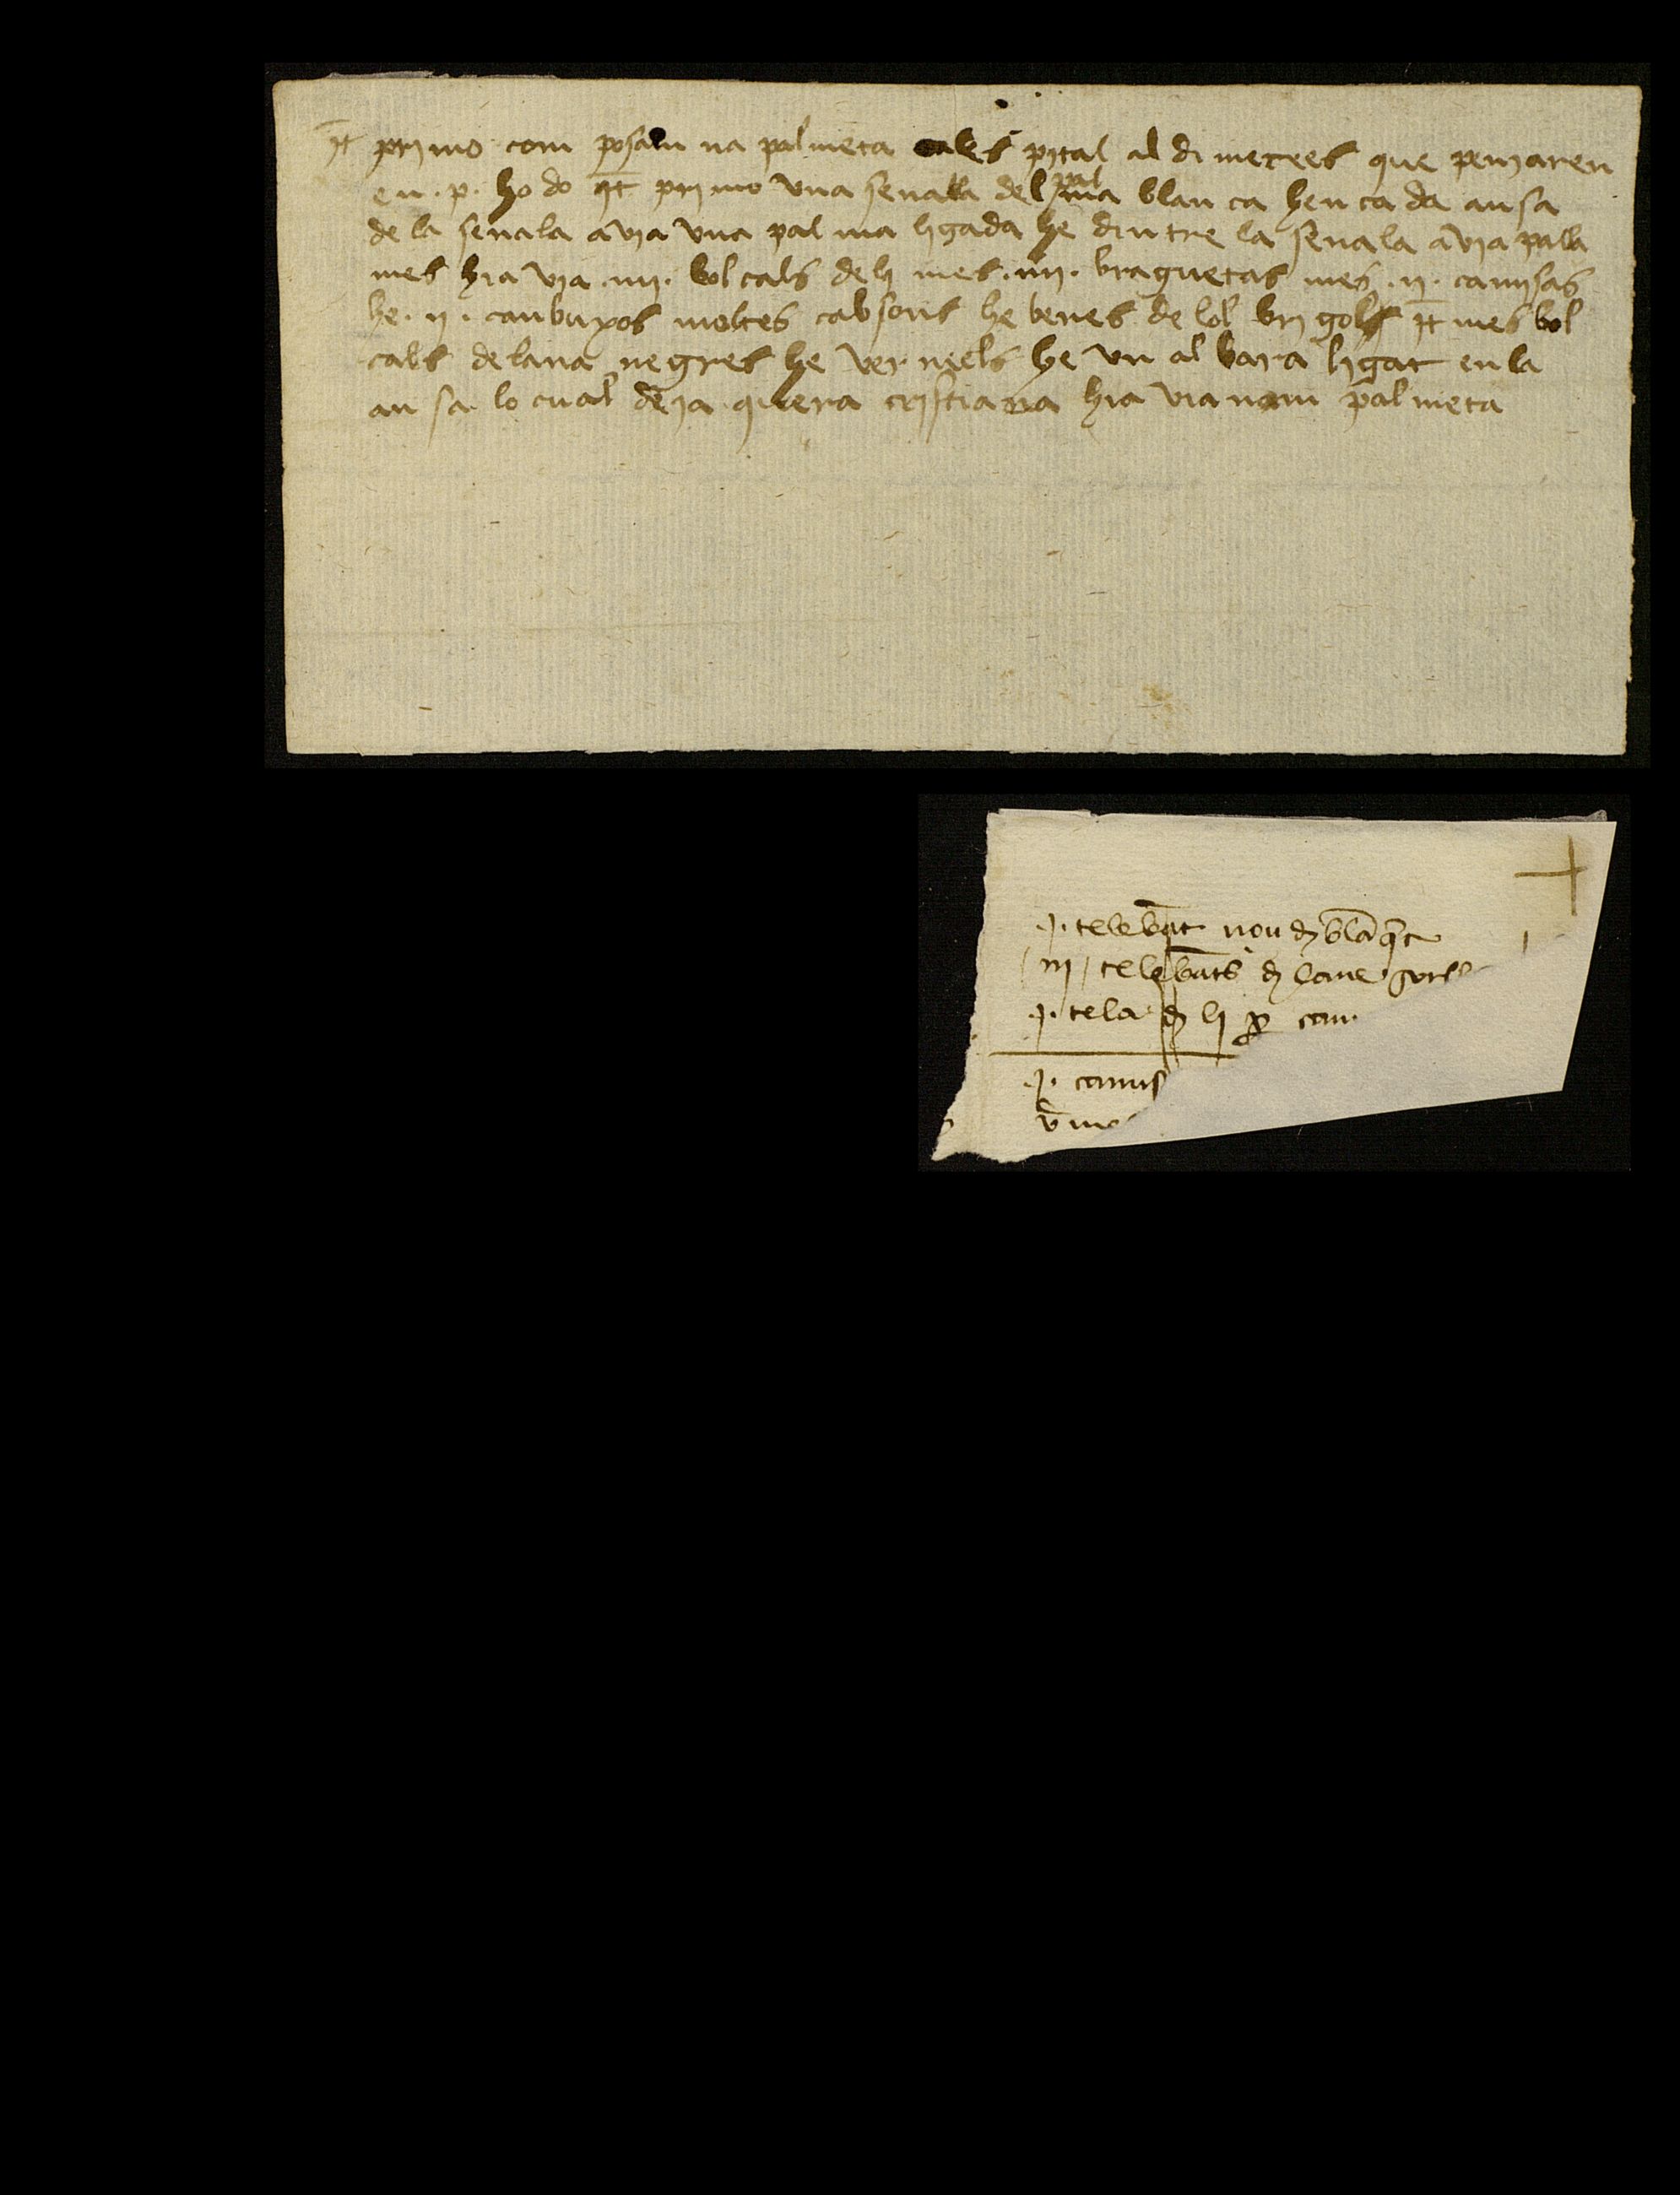 It primo com posam na palmeta al es pital al di mecres que
en . p . ho do It primo vna senala del palma blan ca hen ca da an sa
de la senala avia vna pal ma ligada he dintre la senala avia palla
mes hia via .iiii. bol cals de li mes .iiii. braguetas mes .ii. camisas
he . ii . canbuxos moltes cabsons he benes de lol bri gols It mes bol
cals de lana negres he ver mels he vn al bara ligat en la
an sa lo cual deya quera cristiana hia via nom palmeta
.j. nou d bla
iij d
.j. tela d li p cam
.j. camis